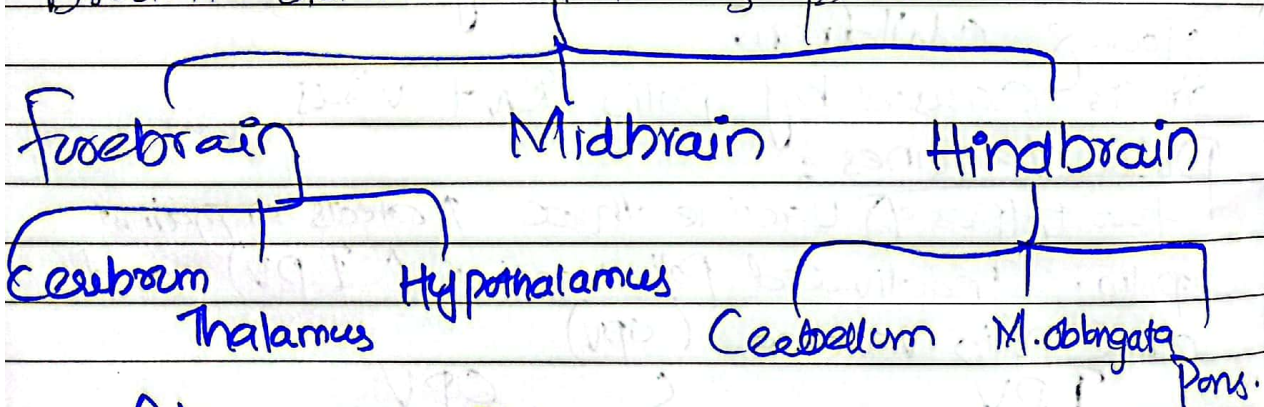 Forebrain Midbrain. Hindbrain
Cerebrum Hypothalamus
Thalamus Cerebellum. M. oblongata
Pons.